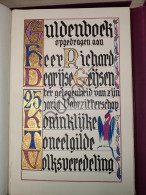 Guldenboek
opgedragen aan
Heer Richard
Degrijse-Geijsen
ter gelegenheid van zijn
25 jarig Voorzitterschap
Koninklijke
Toneelgilde
Volksveredeling